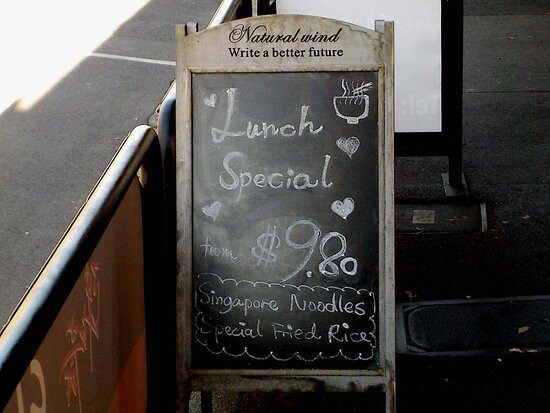 Natural wind
Write a better future
Lunch
Special
from $9.80
Singapore Noodles
Special Fried Rice